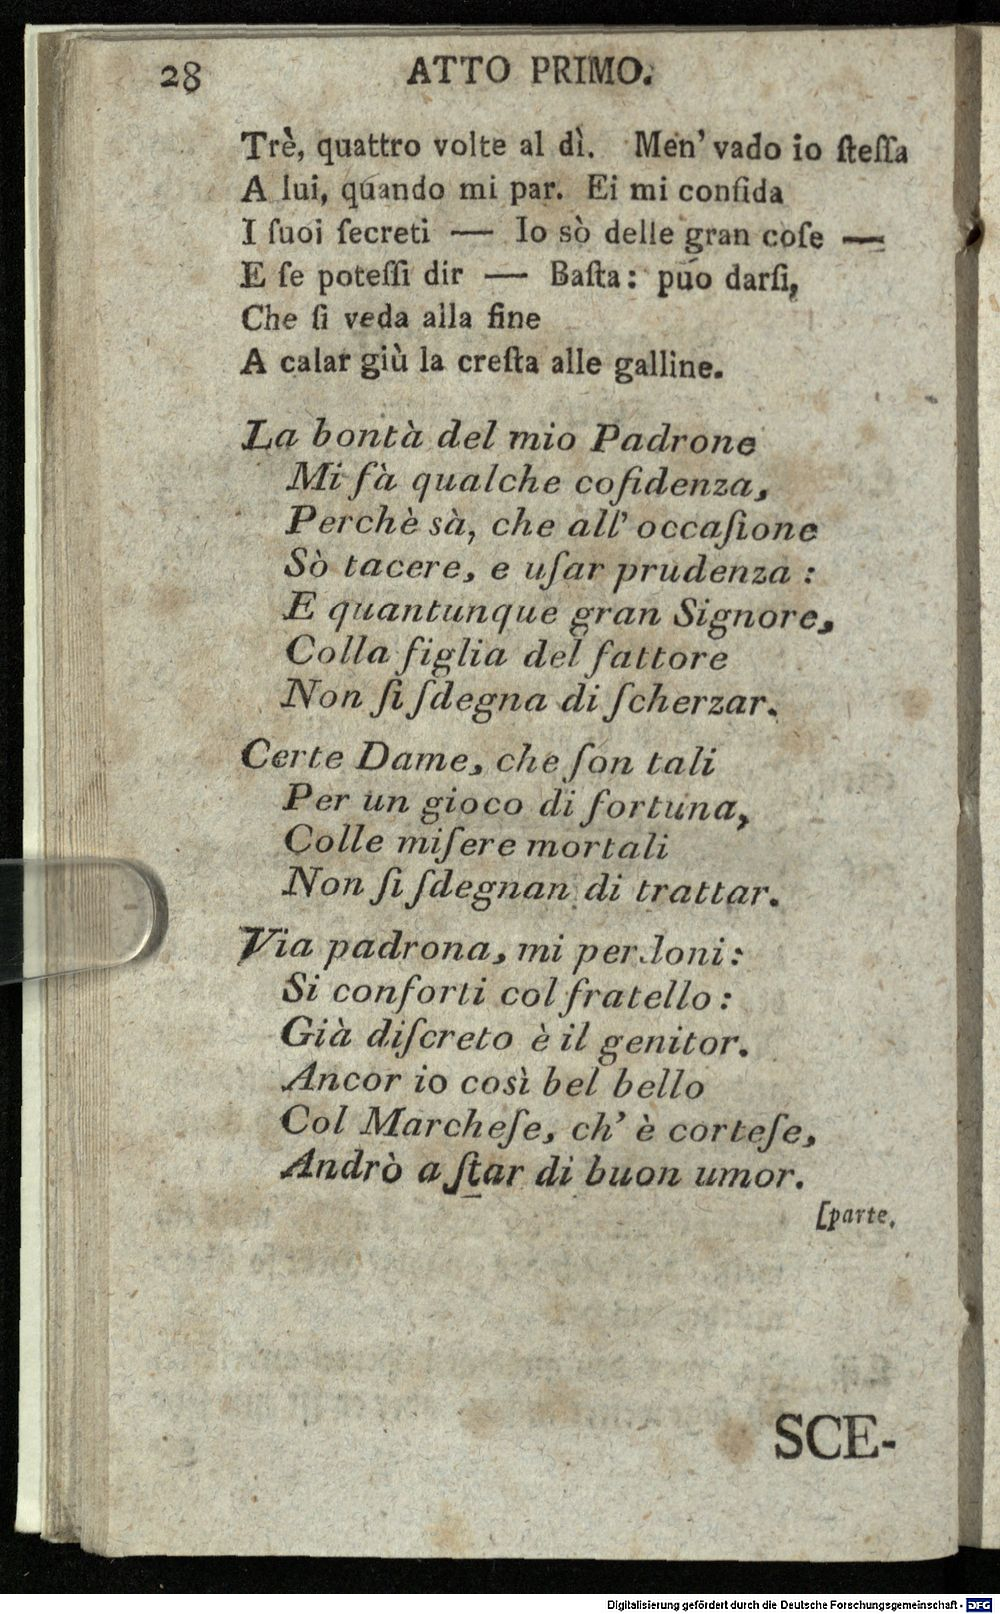 28 ATTO PRIMO.
Trè, quattro volte al dì. Men' vado io ſteſſa
A lui, quando mi par. Ei mi confida
I ſuoi ſecreti — Io sò delle gran coſe —
E ſe poteſſi dir — Baſta: púo darſi,
Che ſi veda alla fine
A calar giù la creſta alle galline.
La bontà del mio Padrone
Mi fà qualche cofidenza,
Perchè sà, che all' occaſione
Sò tacere, e uſar prudenza :
E quantunque gran Signore,
Colla figlia del fattore
Non ſi ſdegna di ſcherzar.
Certe Dame, che ſon tali
Per un gioco di fortuna,
Colle miſere mortali
Non ſi ſdegnan di trattar.
Via padrona, mi perdoni:
Si conforti col fratello :
Già diſcreto è il genitor.
Ancor io così bel bello
Col Marcheſe, ch' è corteſe,
Andrò a ſtar di buon umor.
[parte.
SCE-
Digitalisierung gefördert durch die Deutsche Forschungsgemeinschaft - DFG